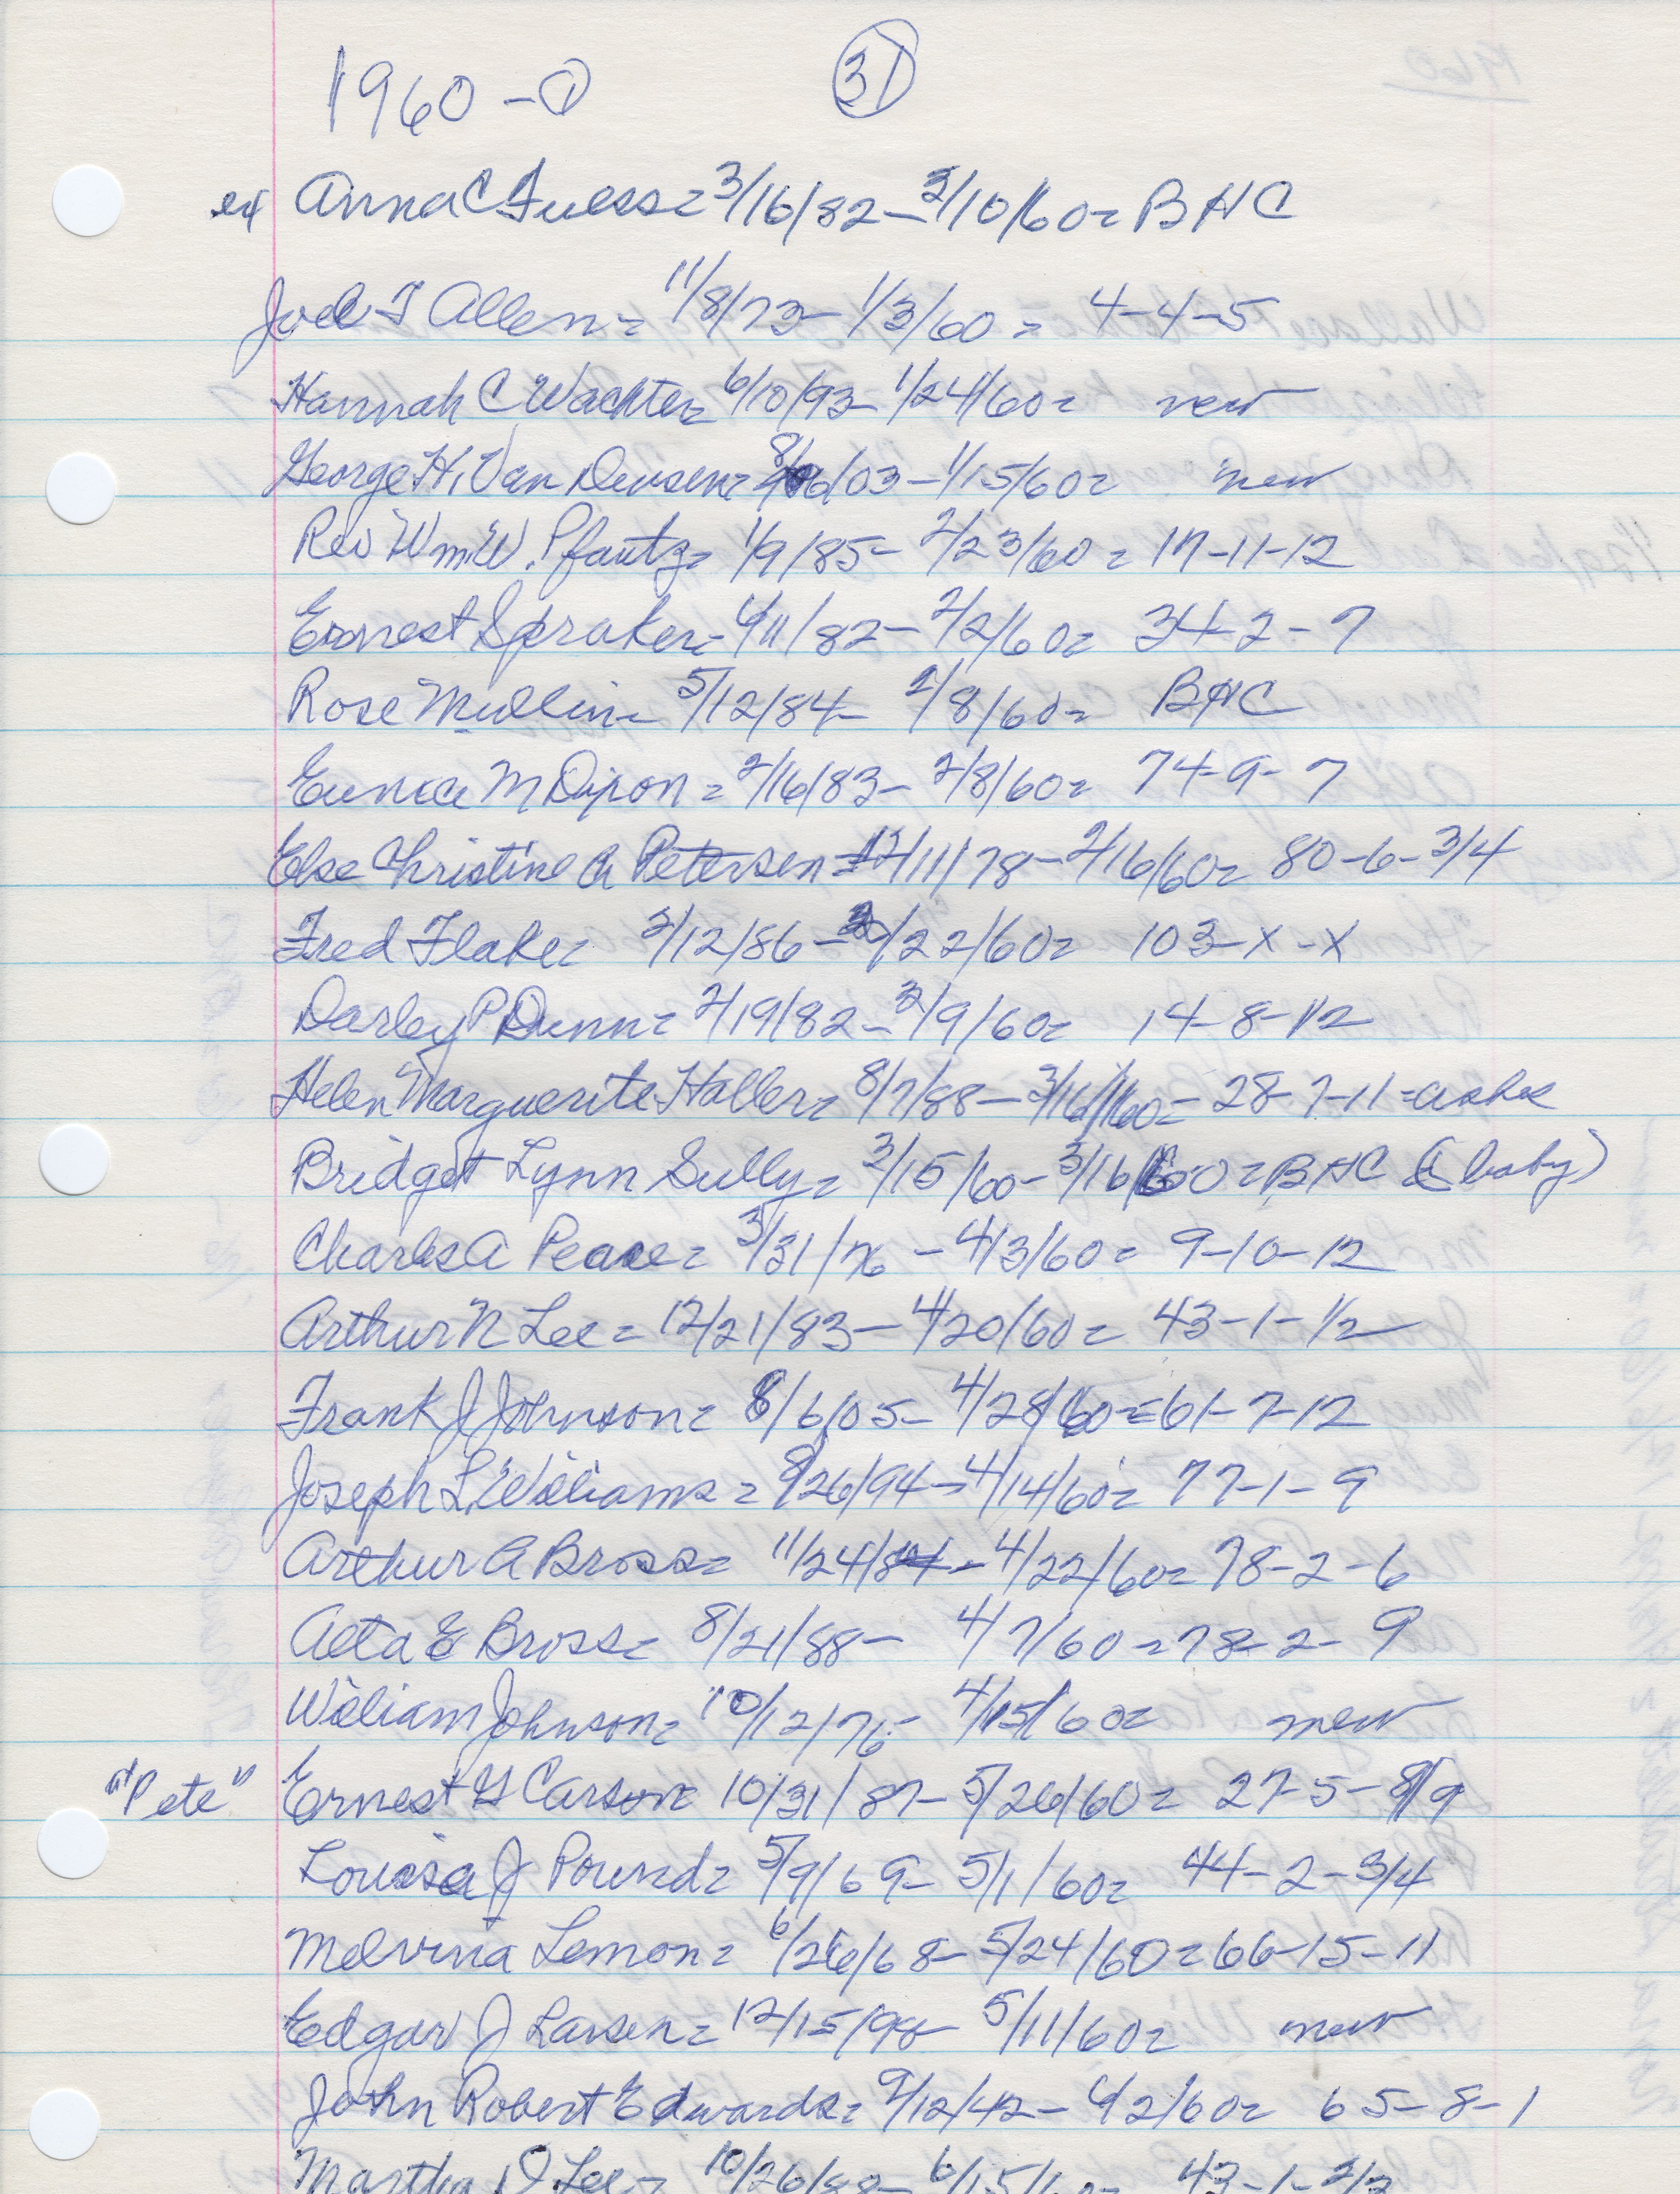 1960 - ① ㉛
Anna C Fuess = 3/16/82 - 3/10/60 = BHC
Joel T Allen = 11/8/73 - 1/3/60 = 4-4-5
Hannah C Wachter = 6/10/93 - 1/24/60 = new
George H. Van Deusen = 8/ /03 - 1/15/60 = new
Rev Wm W. Pfautz = 1/9/85 - 2/23/60 = 17-11-12
Ernest Spraker - /11/82 - 2/2/60 = 34-2-7
Rose Mullin - 5/12/84 - 2/8/60 = BHC
Eunice M Dixon = 2/16/83 - 2/8/60 = 74-9-7
Else Christine A Petersen = 12/11/78 - 2/16/60 = 80-6-3/4
Fred Flake = 3/12/86 - /22/60 = 103-X-X
Darley P Dunn = 2/19/82 - 3/9/60 = 14-8-1/2
Helen Marguerite Haller = 8/7/88 - 3/16/60 = 28-7-11 = ashes
Bridget Lynn Sully = 3/15/60 - 3/16/60 = BHC (baby)
Charles A Pease = 3/31/76 - 4/3/60 = 9-10-12
Arthur N Lee = 12/21/83 - 4/20/60 = 43-1-1/2
Frank J Johnson = 8/6/05 - 4/28/60 = 61-7-12
Joseph L. Williams = 8/26/94 - 4/14/60 = 77-1-9
Arthur A Bross = 11/24/84 - 4/22/60 = 78-2-6
Alta E Bross = 8/21/88 - 4/7/60 = 78-2-9
William Johnson = 10/12/76 - 4/15/60 = new
"Pete" Ernest G Carson = 10/31/87 - 5/26/60 = 27-5-8/9
Louisa J Pound = 5/9/69 - 5/1/60 = 44-2-3/4
Melvina Lemon = 6/26/68 - 5/24/60 = 66-15-11
Edgar J Larsen = 12/15/98 - 5/11/60 = new
John Robert Edwards = 9/12/42 - 6/2/60 = 65-8-1
Martha D Lee = 10/26/88 - 6/15/60 = 43-1-2/3